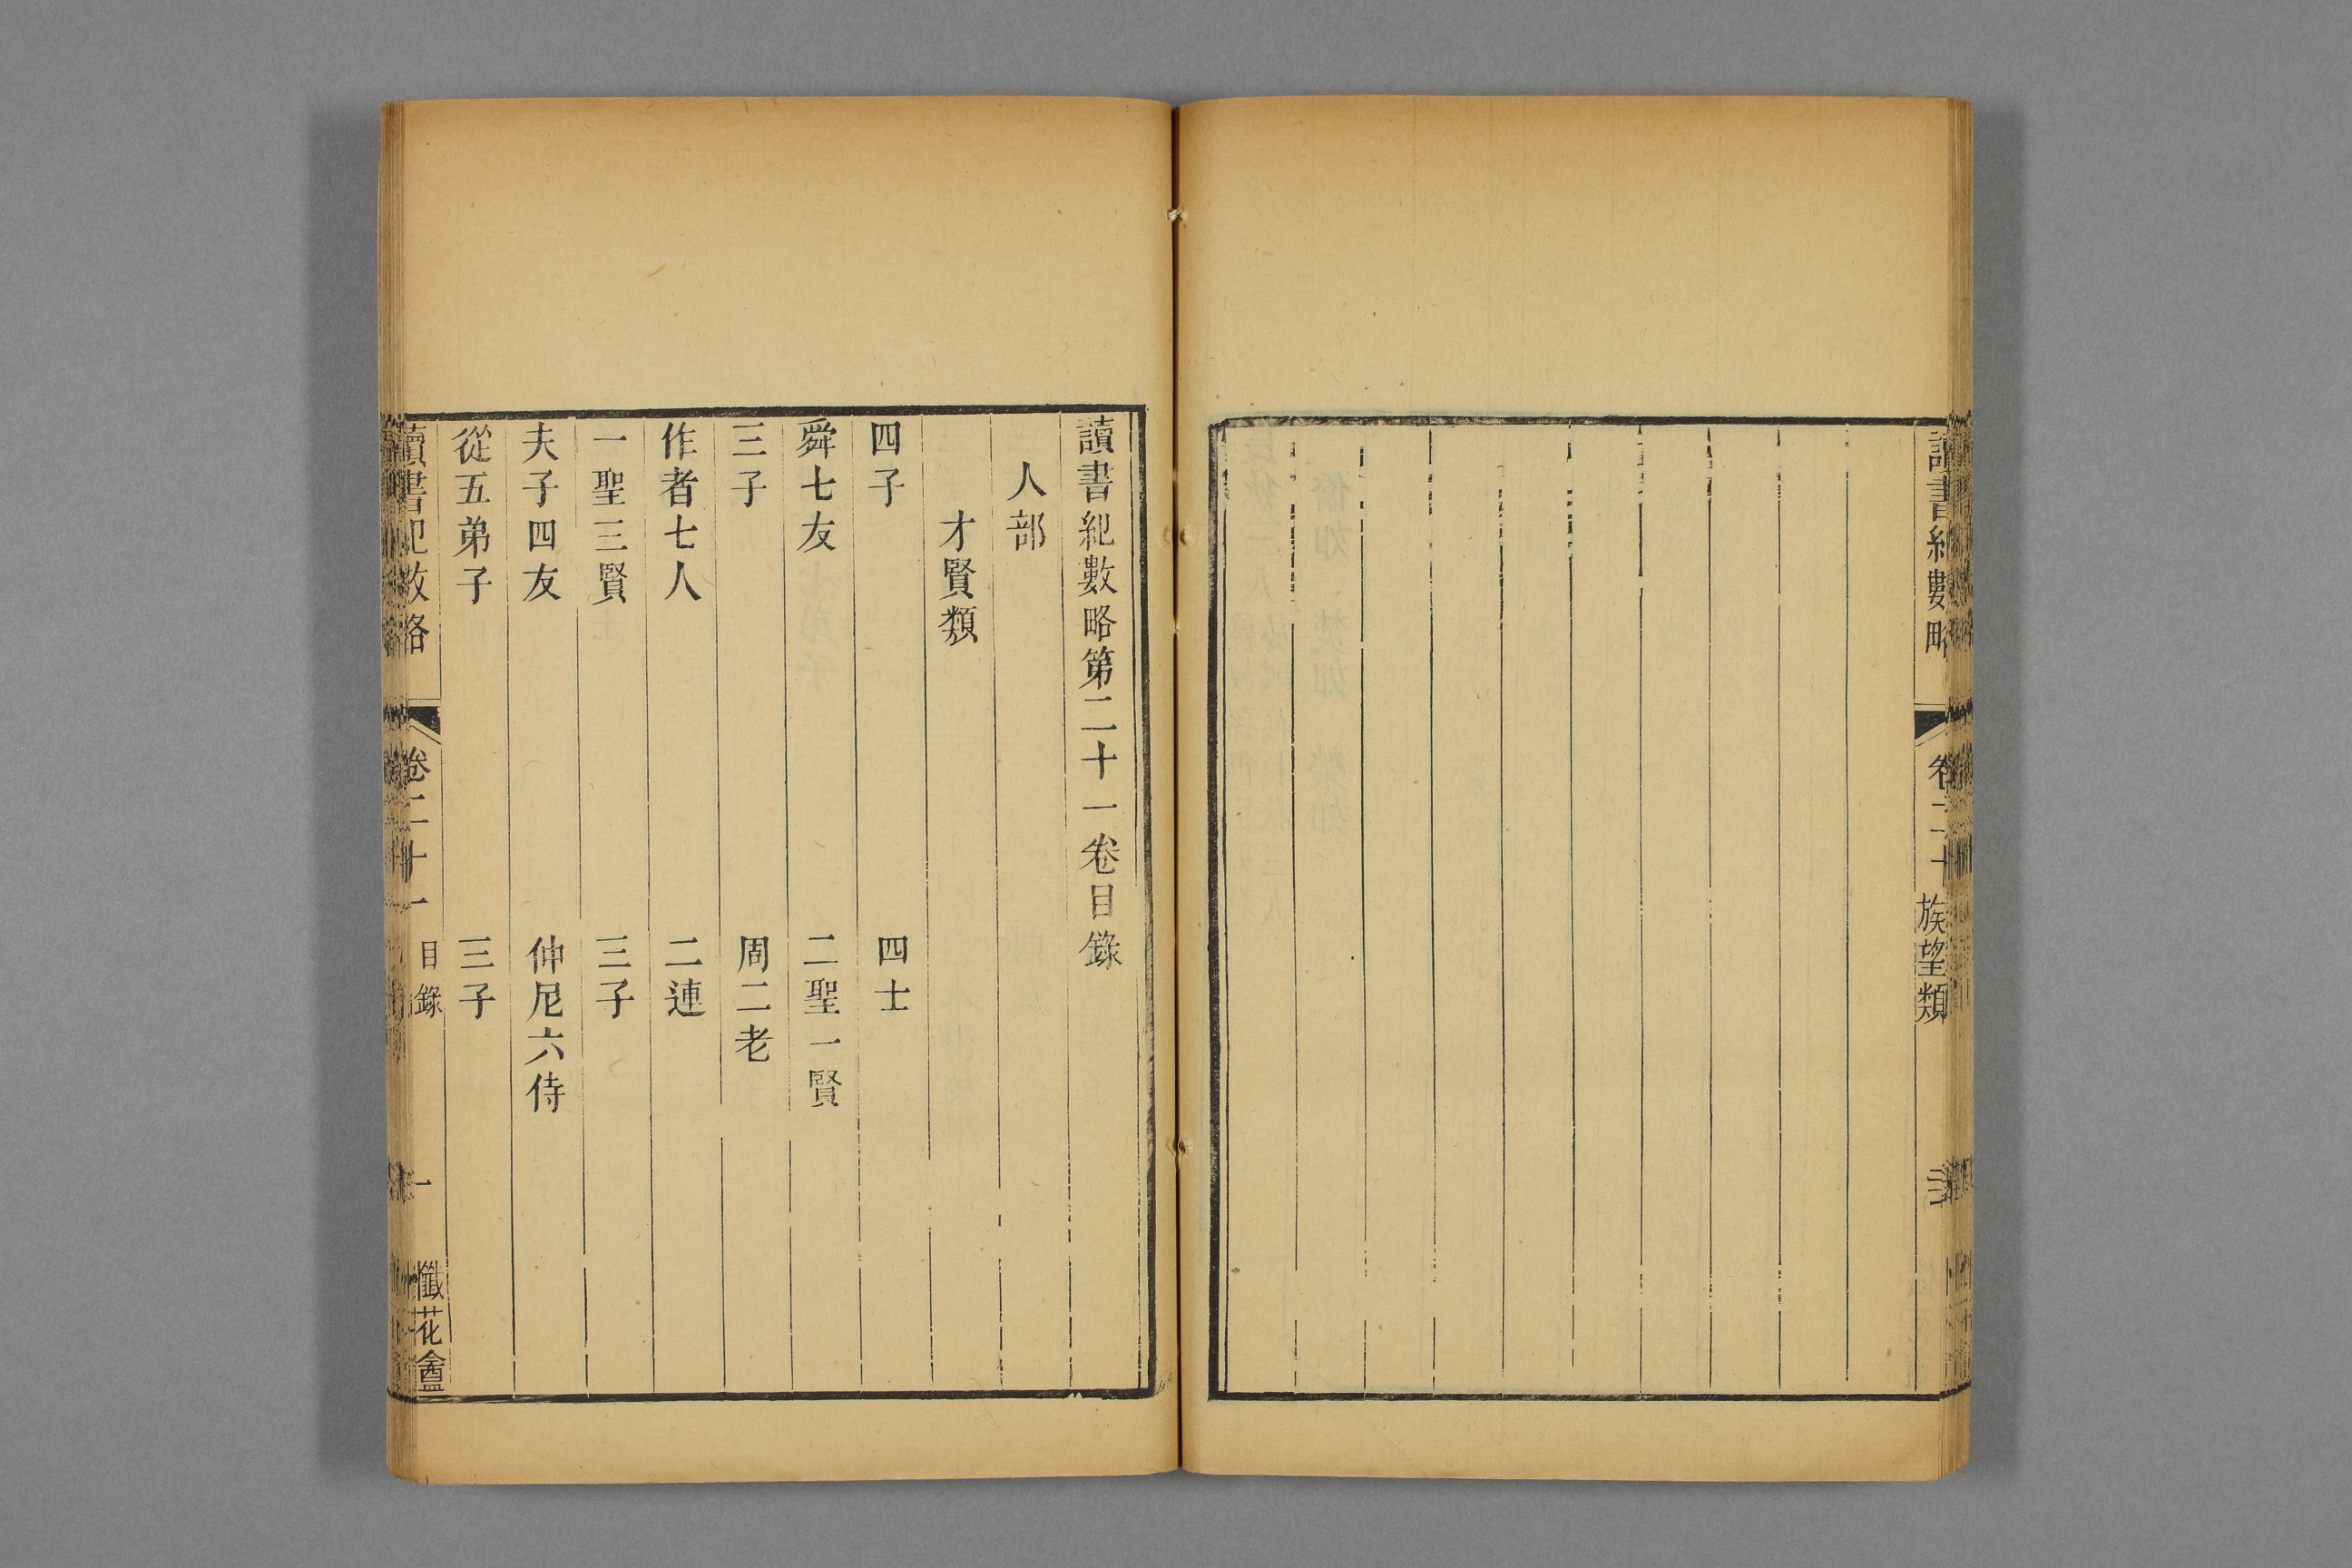 讀書紀數略
卷二十
族望類
讀書紀數略第二十一卷目錄
人部
才賢類
四子
四士
舜七友
二聖一賢
三子
周二老
作者七人
二連
一聖三賢
三子
夫子四友
仲尼六侍
從五弟子
三子
讀書紀數略
卷二十一
目錄
一
懺花盦